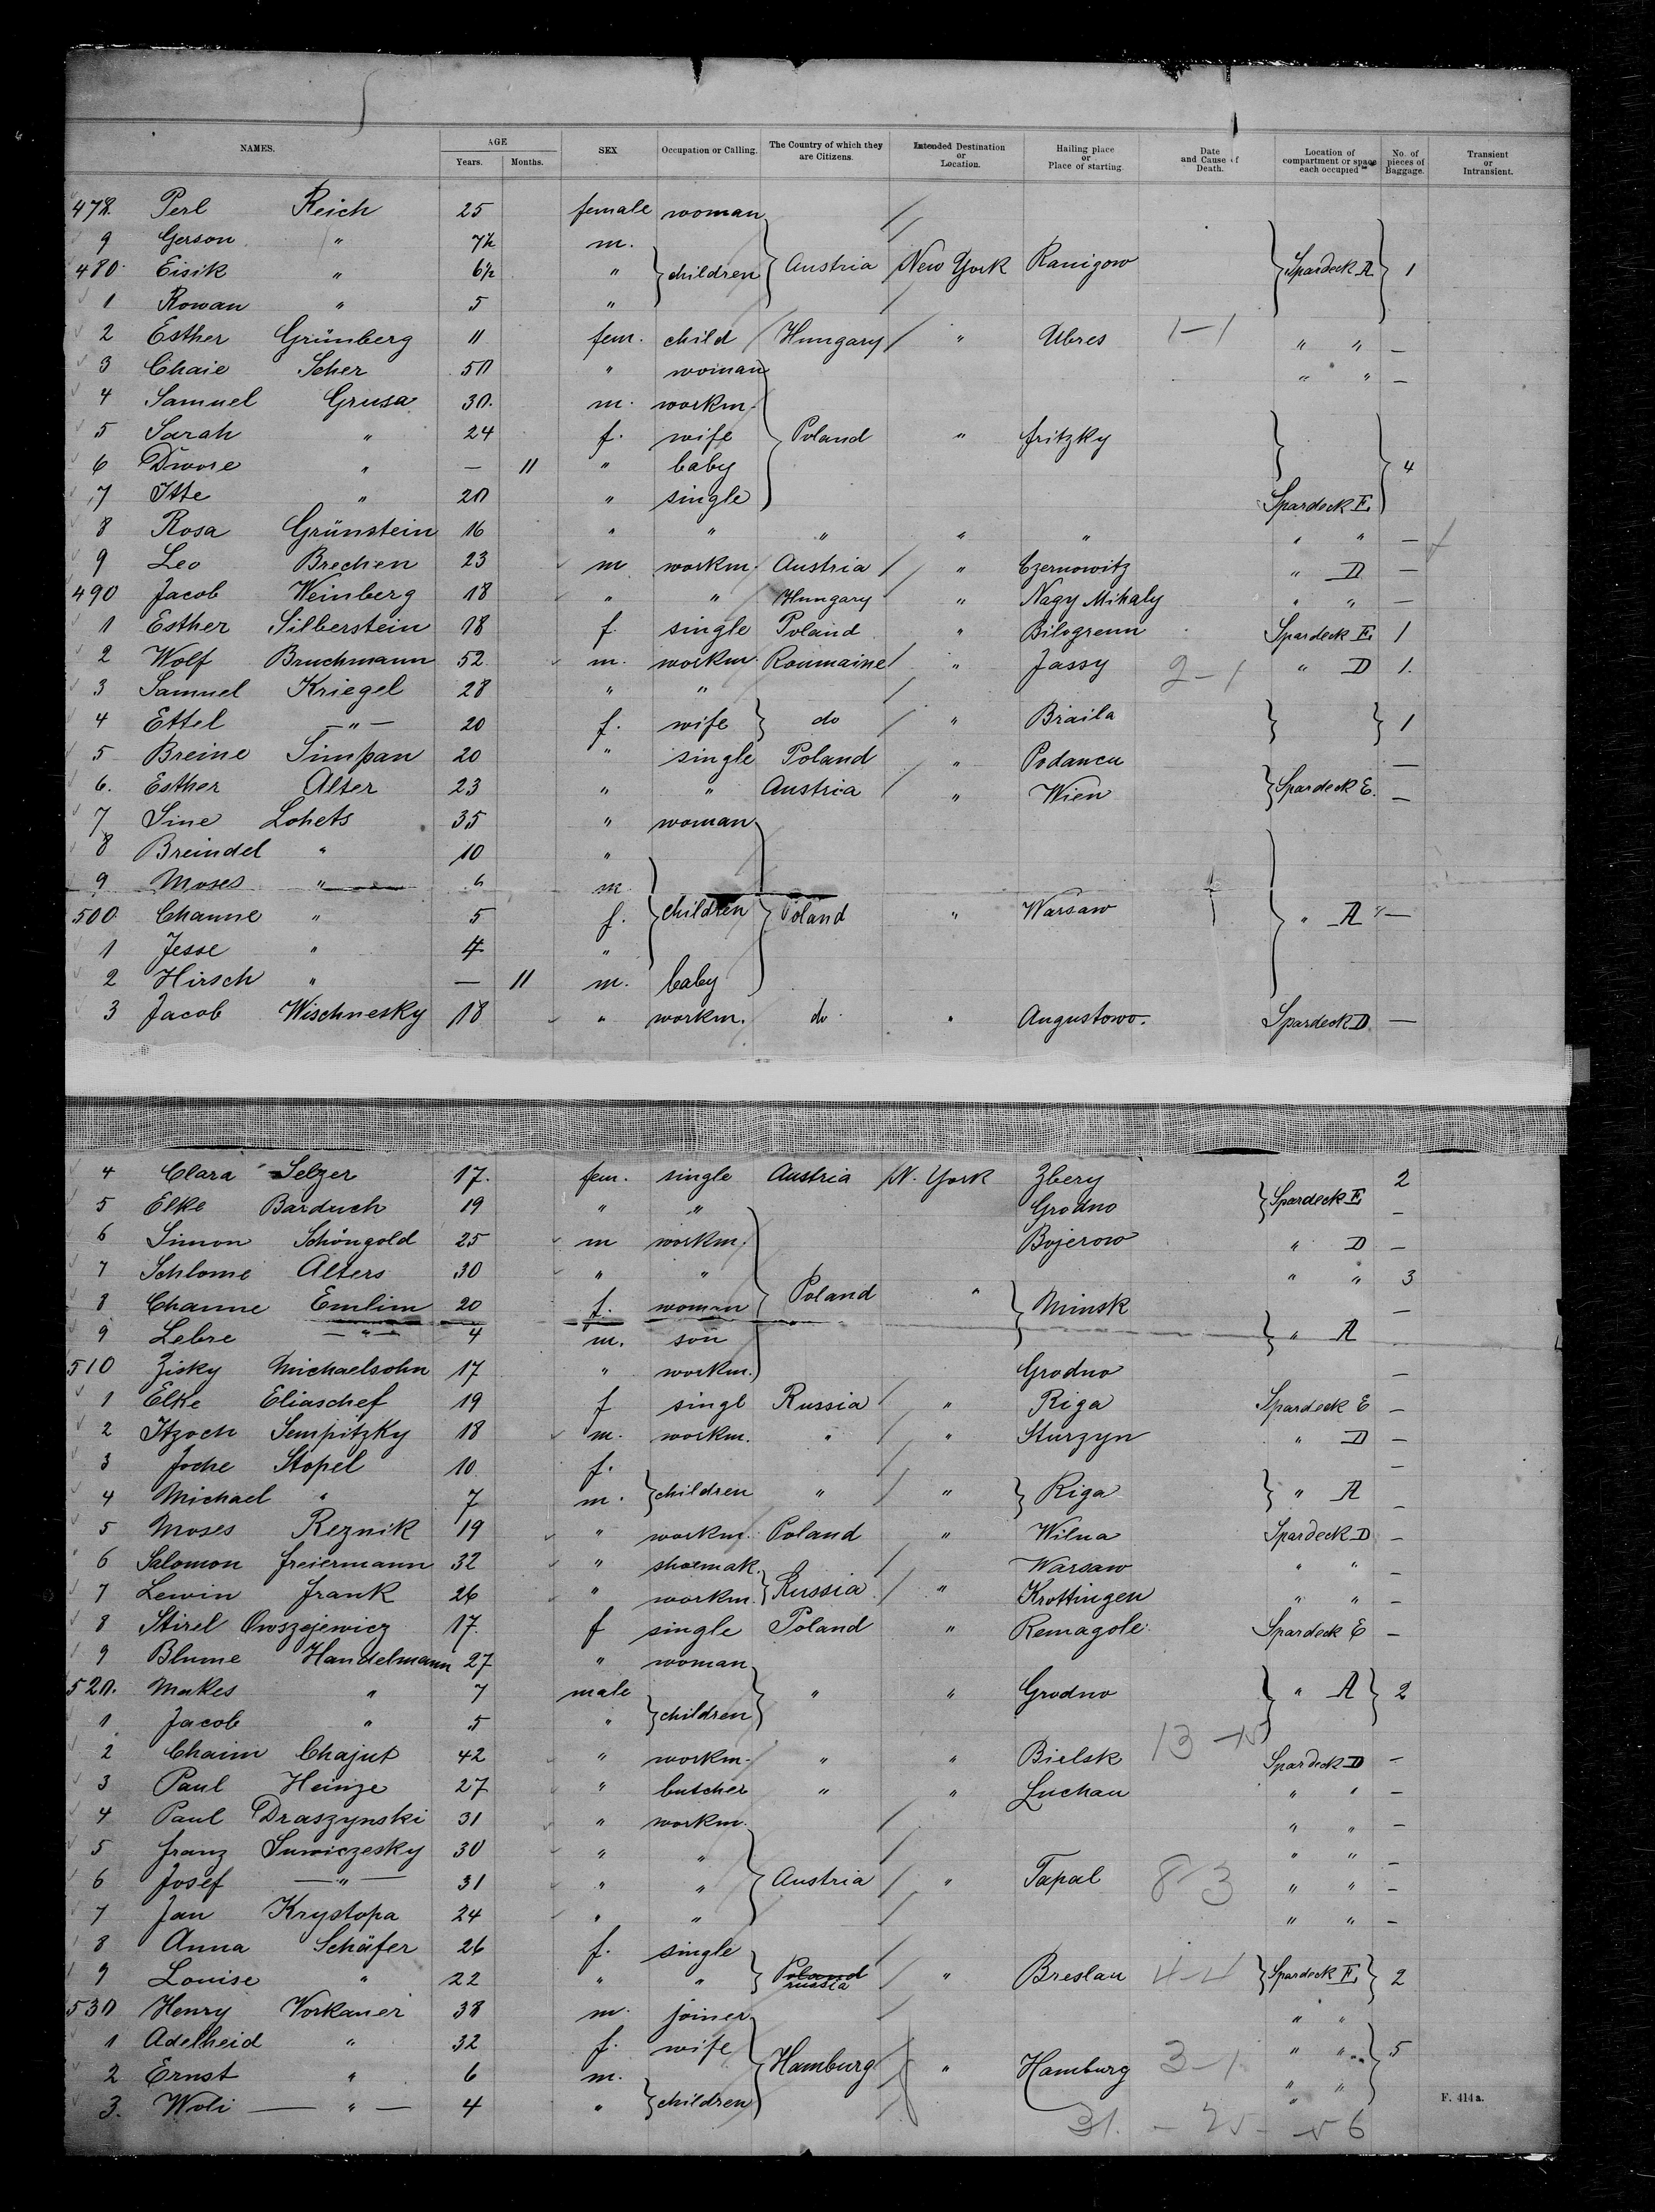 NAMES. AGE SEX Occupation or Calling. The Country of which they are Citizens. Intended Destination or Location. Hailing place or Place of starting. Date and Cause of Death. Location of compartment or space each occupied No. of pieces of Baggage. Transient or Intransient.
Years. Months.
478. Perl Reich 25 female woman
9 Gerson " 7½ m.
480. Eisik " 6½ " children Austria New York Ranigow Spardeck A 1
1 Rowan " 5 "
2 Esther Grünberg 11 fem. child Hungary " Ubres 1-1 " " —
3 Chaie Scher 50 " woman " " —
4 Samuel Grusa 30. m. workm.
5 Sarah " 24 f. wife Poland " fritzky
6 Dwore " — 11 " baby 4
7 Itte " 20 " single Spardeck E.
8 Rosa Grünstein 16 " " " " " " " —
9 Leo Brechen 23 m workm. Austria " Czernowitz " D —
490 Jacob Weinberg 18 " " Hungary " Nagy Mihaly " " —
1 Esther Silberstein 18 f. single Poland " Bilogrenn Spardeck E. 1
2 Wolf Bruchmann 52 m. workm. Roumaine " Jassy 2-1 " D 1.
3 Samuel Kriegel 28 " "
4 Ettel — " — 20 f. wife do " Braila 1
5 Breine Simpan 20 " single Poland " Podancu —
6. Esther Alter 23 " " Austria " Wien Spardeck E. —
7 Sine Lohets 35 " woman
8 Breindel " 10 "
9 Moses " 6 m.
500. Channe " 5 f. children Poland " Warsaw " A " —
1 Jesse " 4 "
2 Hirsch " — 11 m. baby
3 Jacob Wischnesky 18 " workm. do " Augustowo. Spardeck D —
4 Clara Selzer 17. fem. single Austria N. York Zbery 2
5 Elke Barduch 19 " " Grodno Spardeck E. —
6 Simon Schöngold 25 m workm. Bojerow " D —
7 Schlome Alters 30 " " " " 3
8 Channe Emlim 20 f. woman Poland " Minsk —
9 Lebre — " — 4 m. son " A
510 Zisky Michaelsohn 17 " workm. Grodno —
1 Elke Eliaschef 19 f singl Russia " Riga Spardeck E —
2 Itzoch Sempitzky 18 m. workm. " " Sturzyn " D —
3 Joche Stopel 10 f. —
4 Michael " 7 m. children " " Riga " A —
5 Moses Reznik 19 " workm. Poland " Wilna Spardeck D —
6 Salomon freiermann 32 " shoemak. Warsaw " " —
7 Lewin frank 26 " workm. Russia " Krottingen " " —
8 Stirel Owszejewicz 17. f single Poland " Remagole Spardeck E —
9 Blume Handelmann 27 " woman
520. Makes " 7 male " " Grodno " A 2
1 Jacob " 5 " children
2 Chaim Chajut 42 " workm. " " Bielsk 13 - Spardeck D —
3 Paul Heinze 27 " butcher " " Luchau " " —
4 Paul Draszynski 31 " workm. " " —
5 franz Suwiczesky 30 " " " " —
6 Josef — " — 31 " " Austria " Tapal 8-3 " " —
7 Jan Krystopa 24 " " " " —
8 Anna Schäfer 26 f. single
9 Louise " 22 " " Poland russia " Breslau 4-4 Spardeck E. 2
530 Henry Vorkauer 38 m. joiner " "
1 Adelheid " 32 f. wife " " 5
2 Ernst " 6 m. Hamburg " Hamburg 3-1 " "
3. Woli — " — 4 " children "
31. - 25 - 56
F. 414 a.